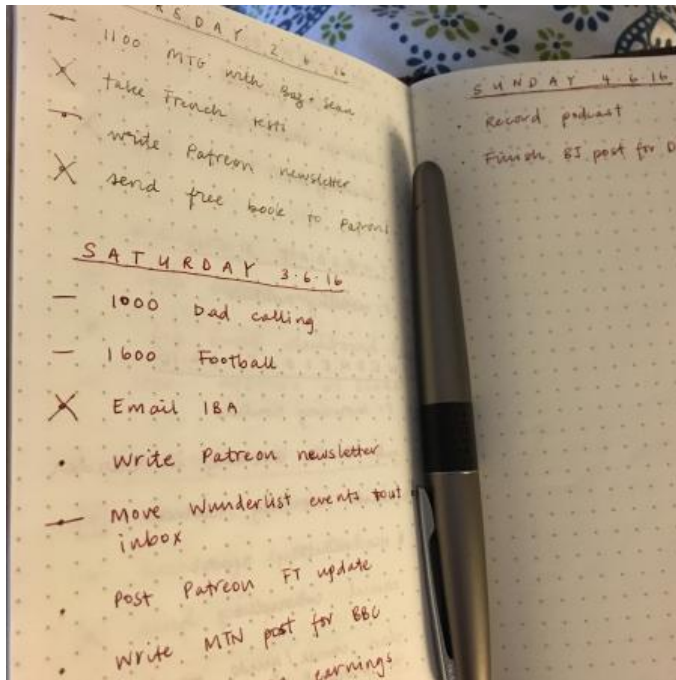 RSDAY 2.6.16
– 1100 MTG with Baz + Sean
× take French test
– write Patreon newsletter
× send free book to Patrons
SATURDAY 3.6.16
– 1000 Dad calling
– 1600 Football
× Email IBA
• Write Patreon newsletter
– Move Wunderlist events out
inbox
• Post Patreon FT update
• Write MTN post for BBC
earnings
SUNDAY 4.6.16
• Record podcast
• Finish BI post for D